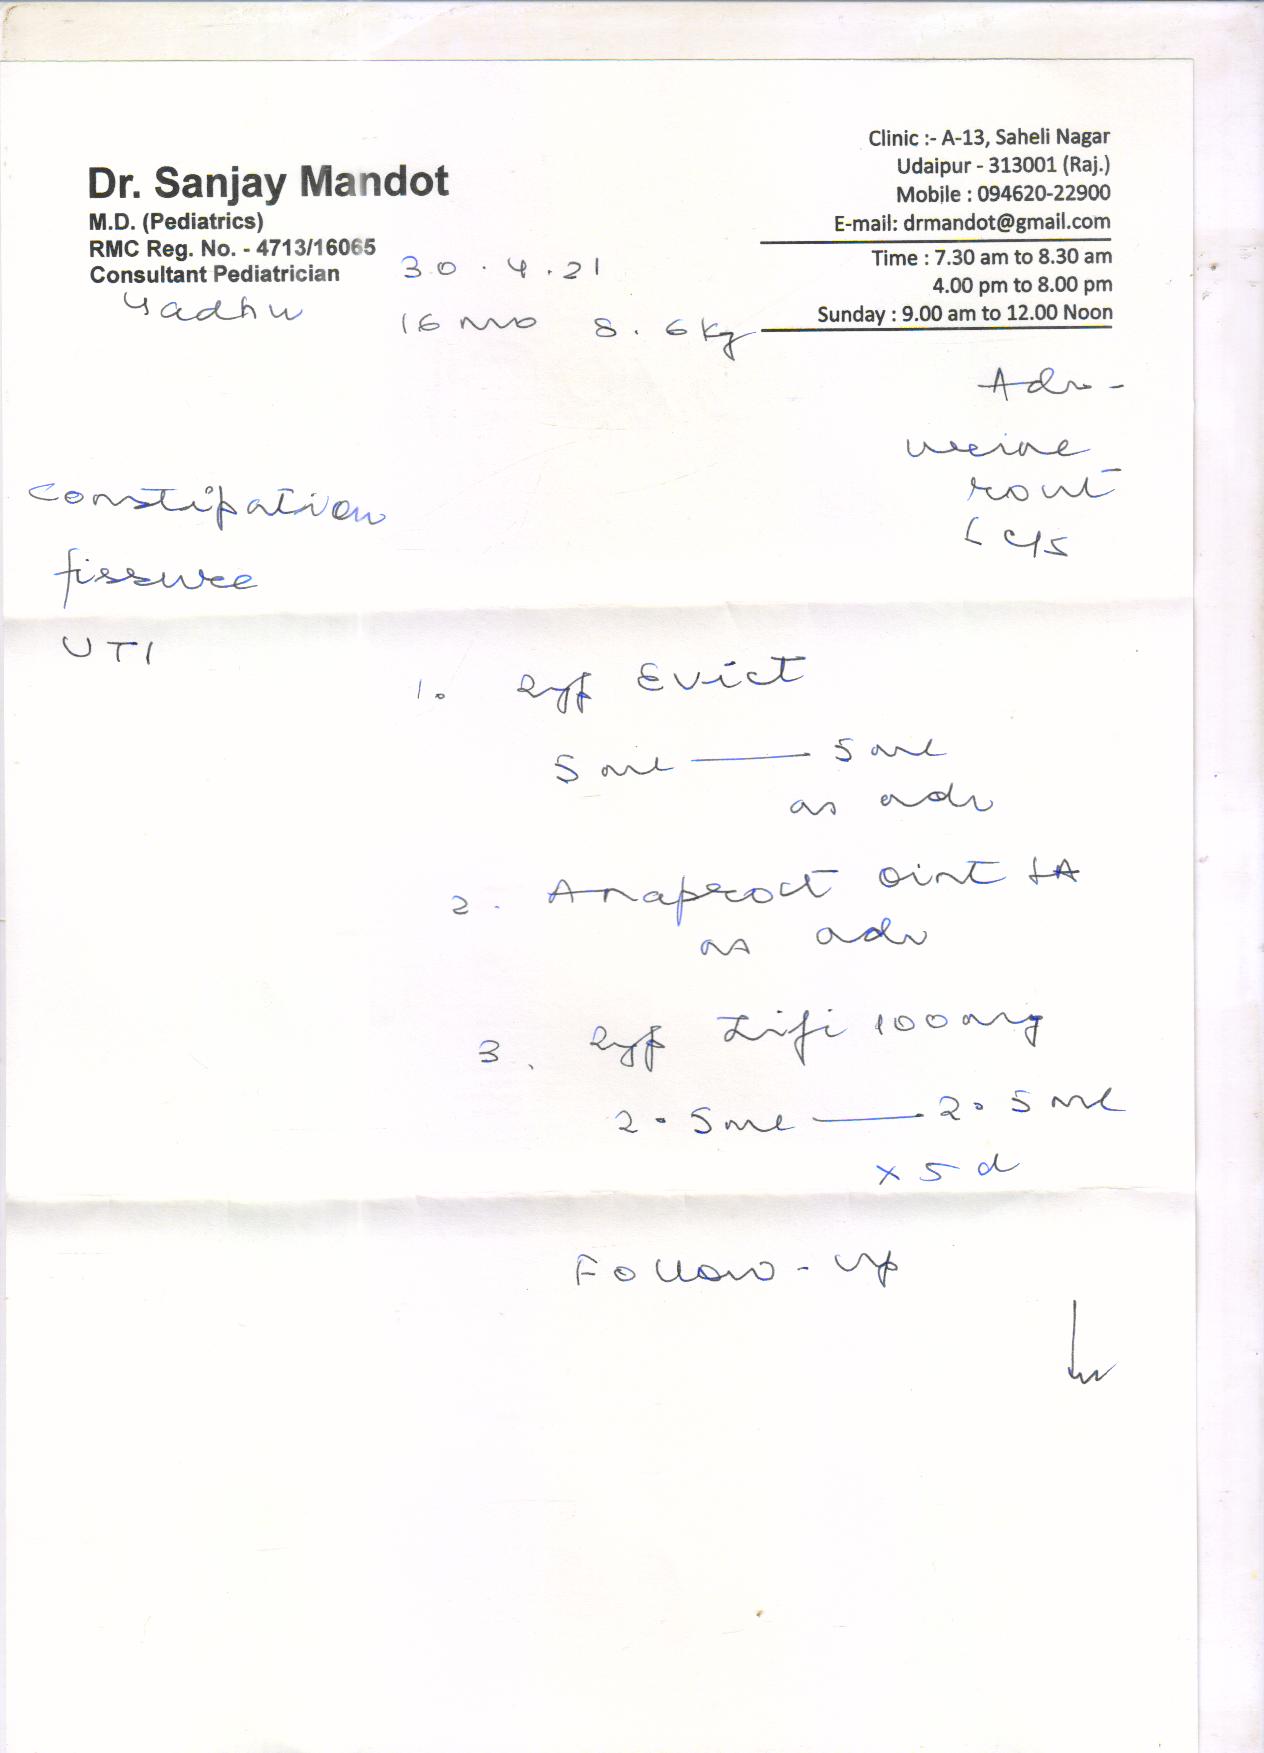 Dr. Sanjay Mandot
M.D. (Pediatrics)
RMC Reg. No. - 4713/16065
Consultant Pediatrician
Clinic :- A-13, Saheli Nagar
Udaipur - 313001 (Raj.)
Mobile : 094620-22900
E-mail: drmandot@gmail.com
Time : 7.30 am to 8.30 am
4.00 pm to 8.00 pm
Sunday : 9.00 am to 12.00 Noon
30.4.21
Yadhu 16 mo 8.6 kg
Adv -
urine
rout
c/s
Constipation
fissure
UTI
1. Syp Evict
5 ml — 5 ml
as adv
2. Anaproct oint LA
as adv
3. Syp Zifi 100 mg
2.5 ml — 2.5 ml
x 5 d
Follow-up